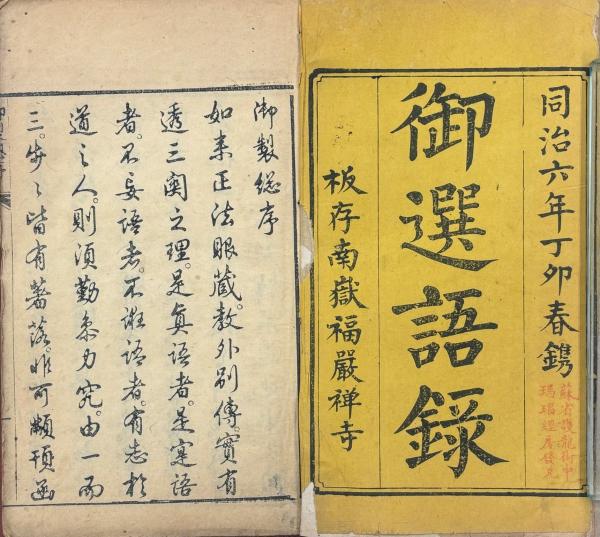 同治六年丁卯春鐫
御選語錄
板存南嶽福嚴禅寺
蘇省護龍街中
瑪瑙經房發兌
御製總序
如来正法眼蔵。教外别傳。實有
透三関之理。是真語者。是寔語
者。不妄語者。不誑語者。有志於
道之人。則須勤参力究。由一而
三。步〻皆有著落。非可顢頇函